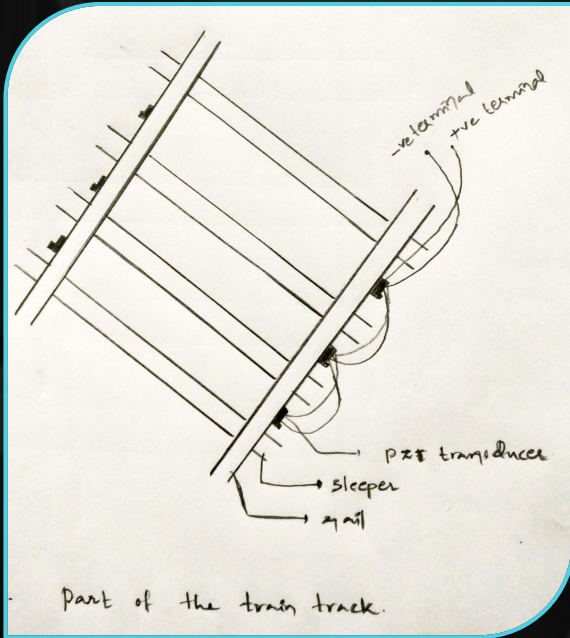 -ve terminal
+ve terminal
PZT transducer
sleeper
rail
Part of the train track.